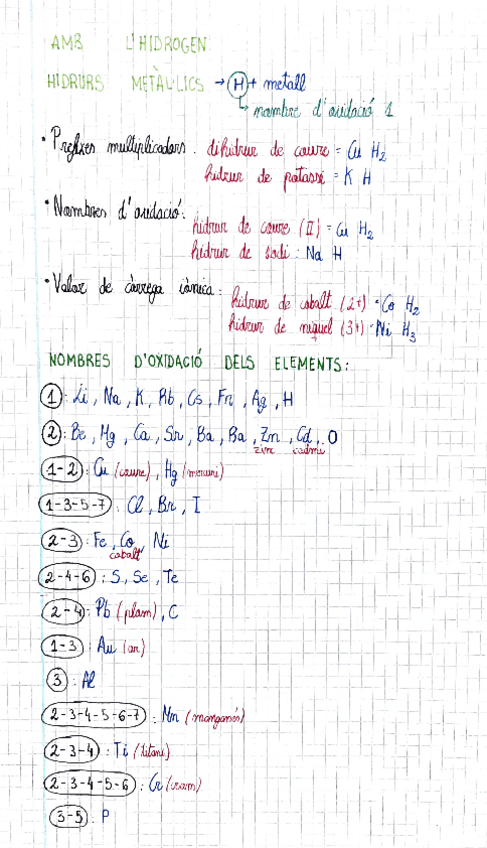 AMB L'HIDROGEN
HIDRURS METÀL·LICS → H + metall
↳ nombre d'oxidació 1
• Prefixes multiplicadors. dihidrur de coure = Cu H₂
hidrur de potassi = K H
• Nombres d'oxidació: hidrur de coure (II) = Cu H₂
hidrur de sodi : Na H
• Valor de càrrega iònica: hidrur de cobalt (2+) = Co H₂
hidrur de niquel (3+) = Ni H₃
NOMBRES D'OXIDACIÓ DELS ELEMENTS:
1 : Li, Na, K, Rb, Cs, Fr, Ag, H
2 : Be, Mg, Ca, Sr, Ba, Ra, Zn, Cd, O
zinc cadmi
1-2 : Cu (coure), Hg (mercuri)
1-3-5-7 : Cl, Br, I
2-3 : Fe, Co, Ni
cobalt
2-4-6 : S, Se, Te
2-4 : Pb (plom), C
1-3 : Au (or)
3 : Al
2-3-4-5-6-7 : Mn (manganés)
2-3-4 : Ti (titani)
2-3-4-5-6 : Cr (crom)
3-5 : P